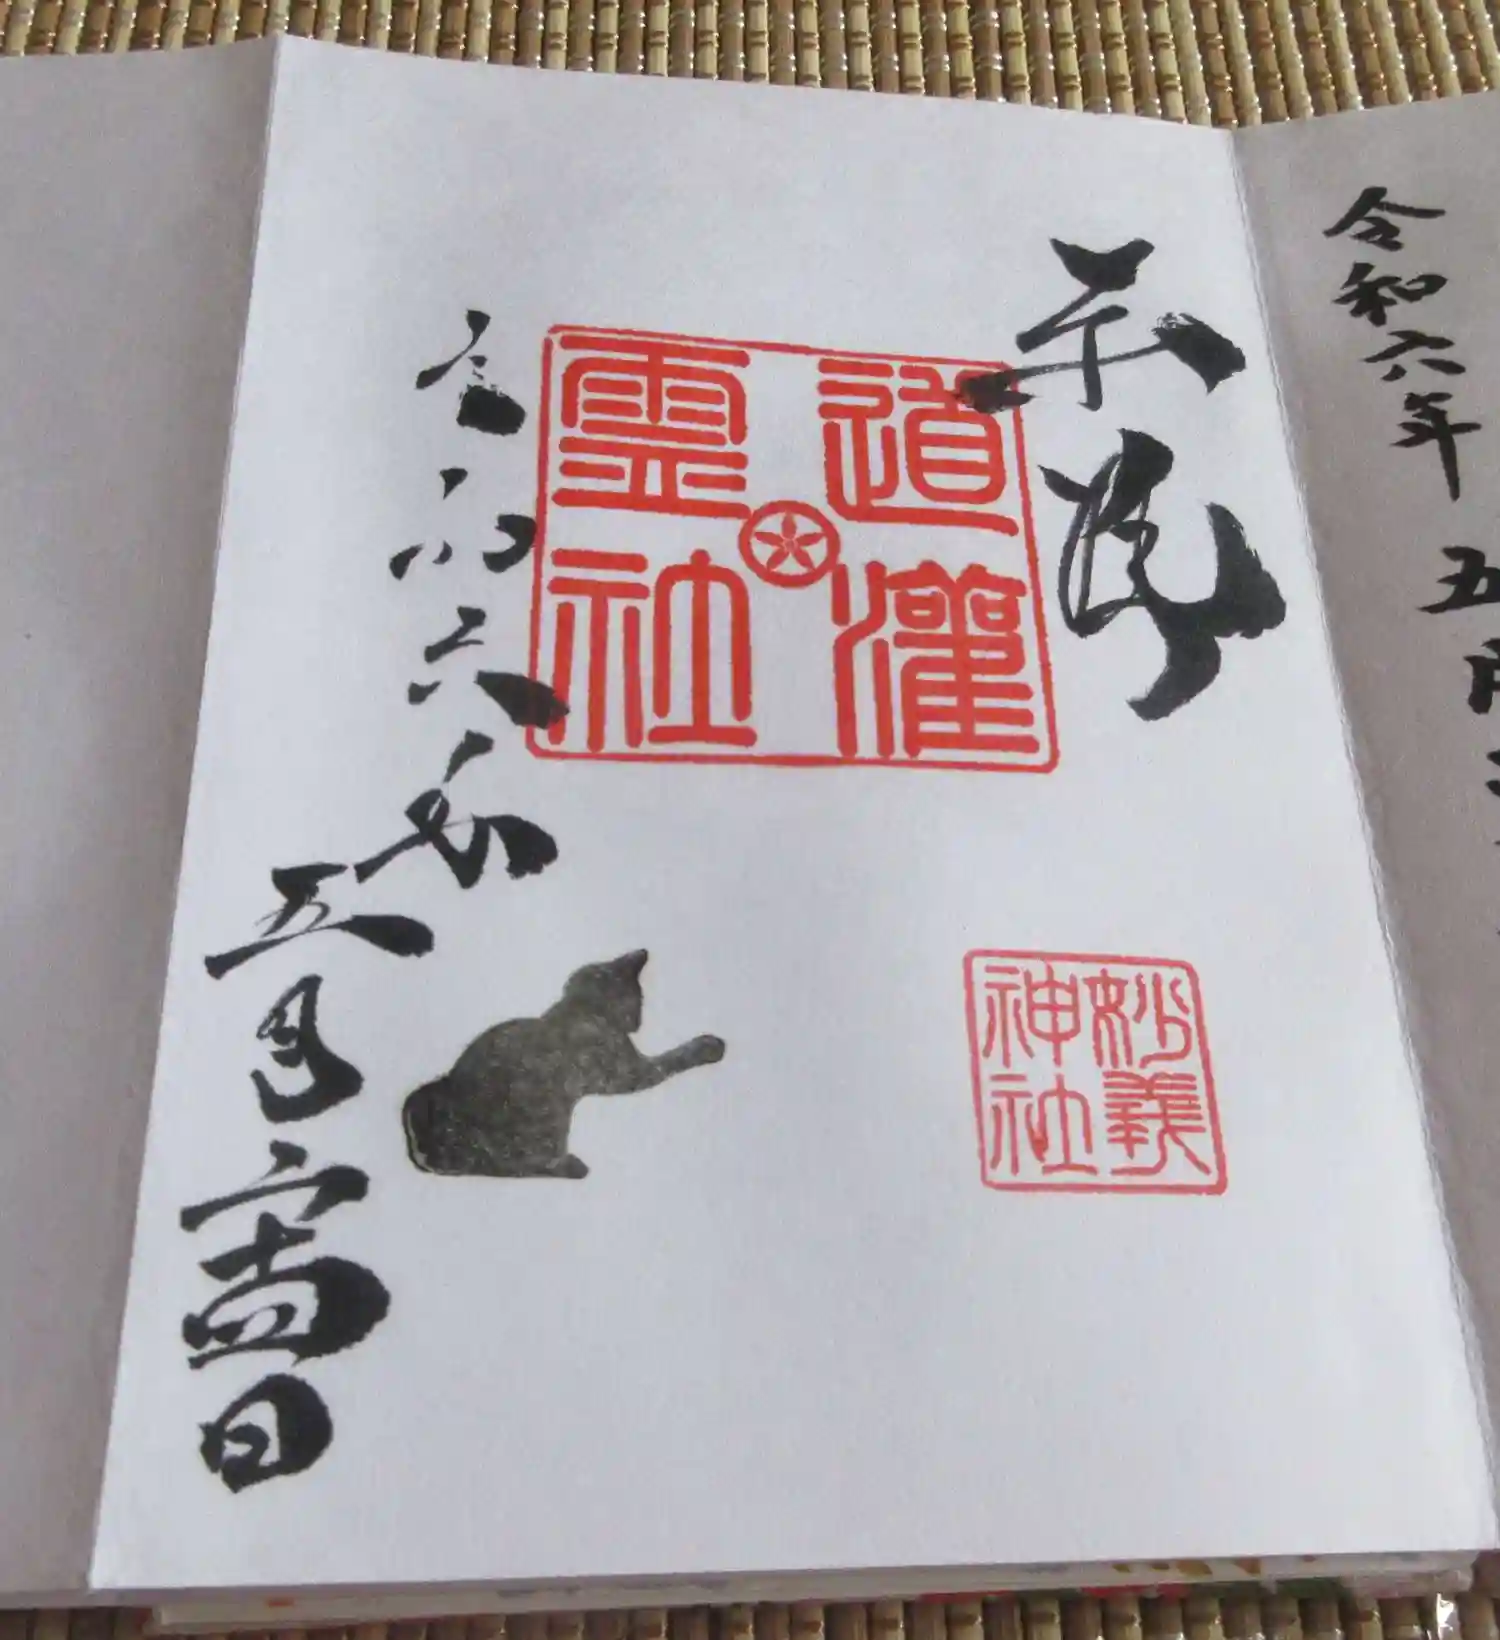 令和六年 五月
奉拝
道灌
霊社
妙義
神社
令和六年
五月二十四日